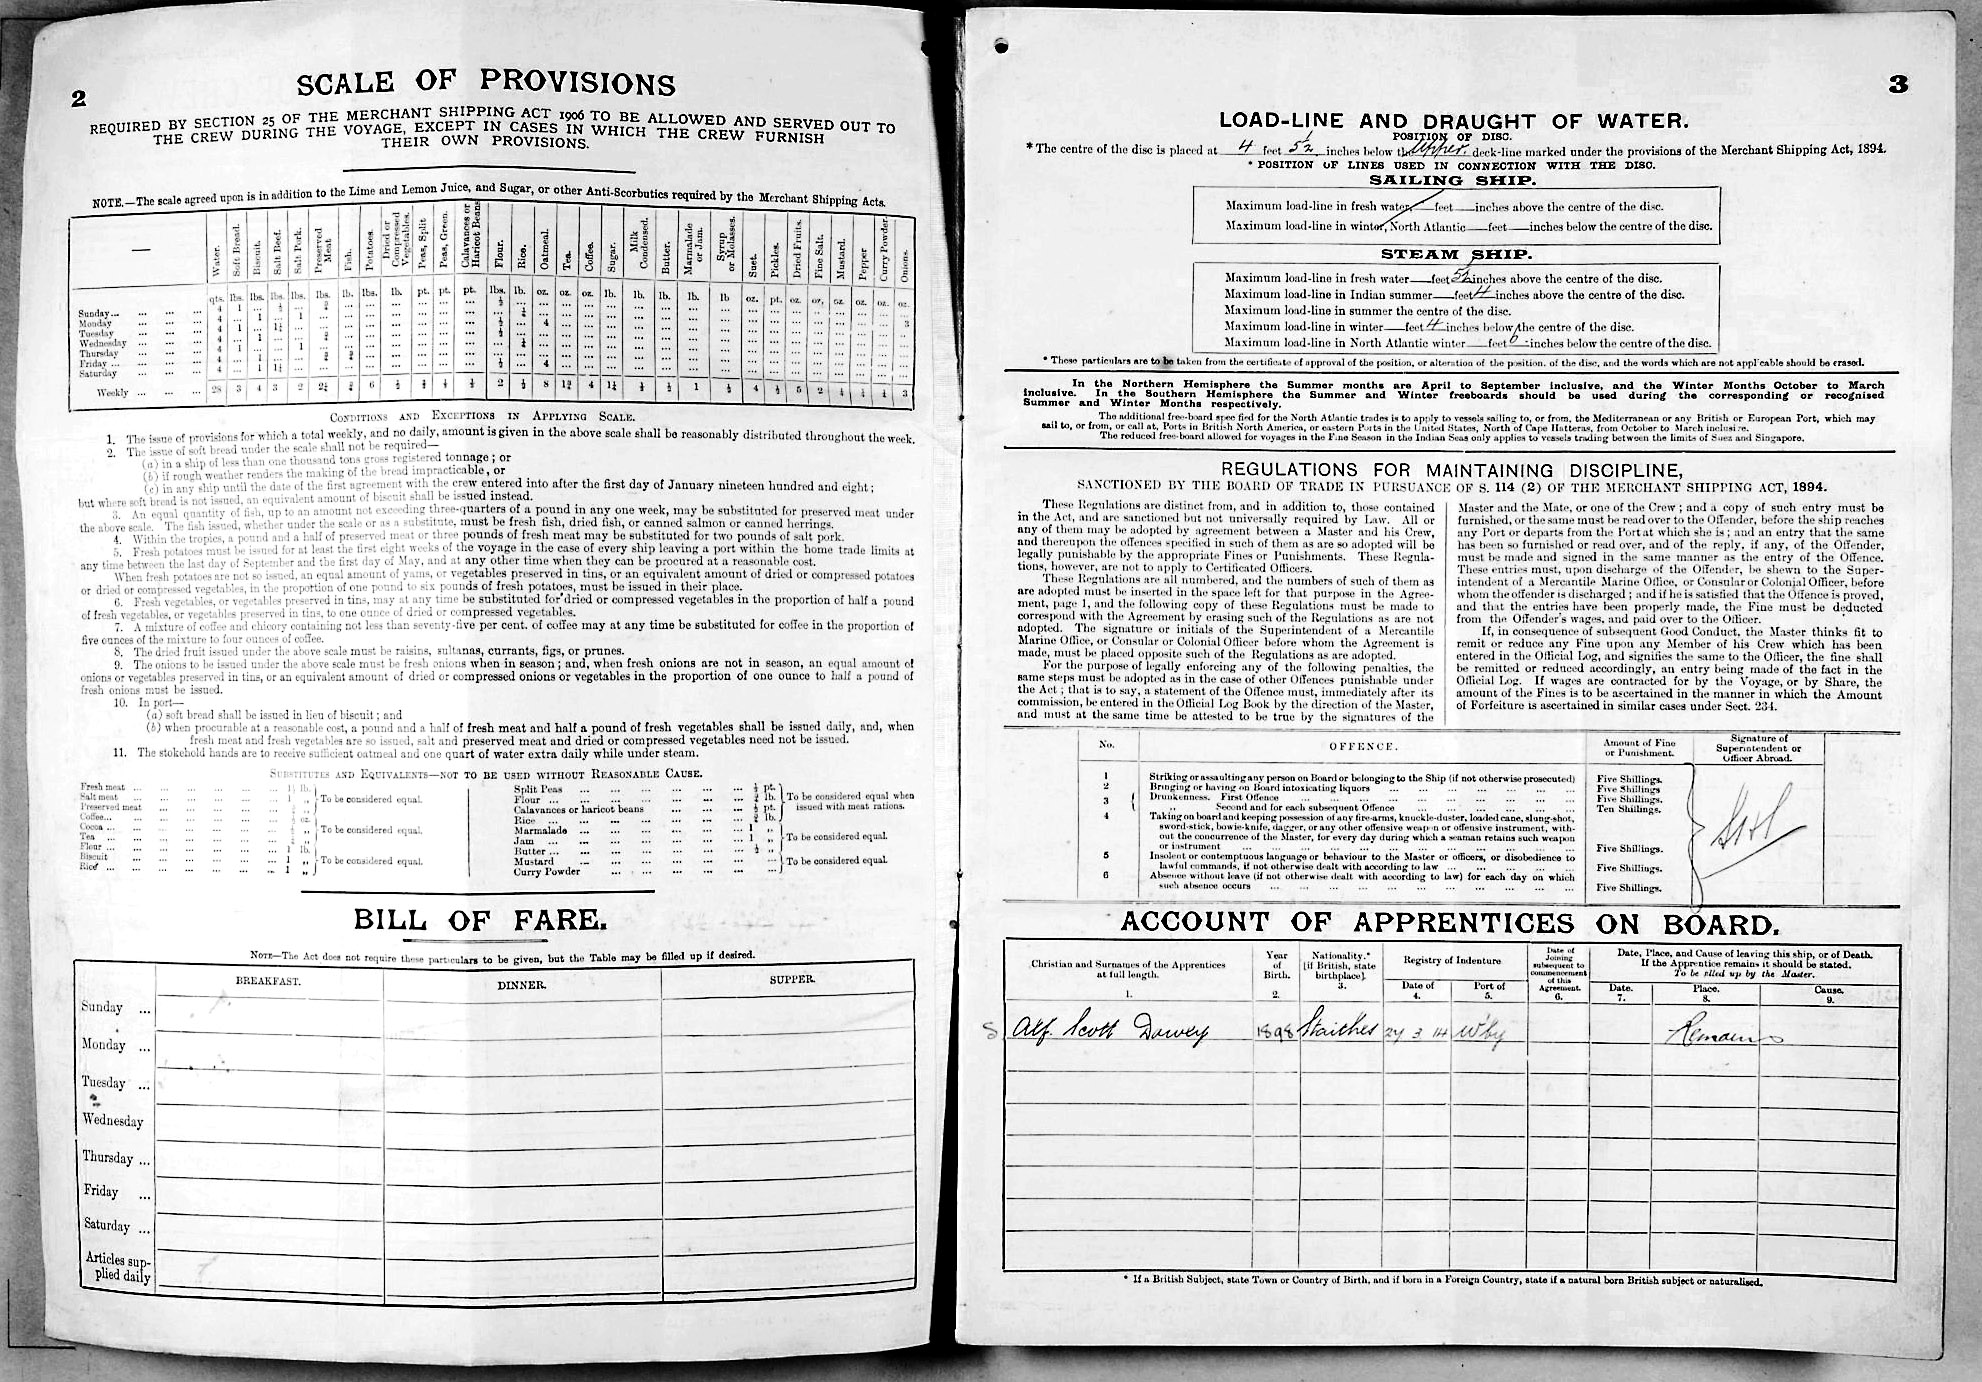 2
SCALE OF PROVISIONS
REQUIRED BY SECTION 25 OF THE MERCHANT SHIPPING ACT 1906 TO BE ALLOWED AND SERVED OUT TO
THE CREW DURING THE VOYAGE, EXCEPT IN CASES IN WHICH THE CREW FURNISH
THEIR OWN PROVISIONS.
NOTE.—The scale agreed upon is in addition to the Lime and Lemon Juice, and Sugar, or other Anti-Scorbutics required by the Merchant Shipping Acts.
Water. Soft Bread. Biscuit. Salt Beef. Salt Pork. Preserved Meat Fish. Potatoes. Dried or Compressed Vegetables. Peas, Split Peas, Green. Calavances or Haricot Beans Flour. Rice. Oatmeal. Tea. Coffee. Sugar. Milk Condensed. Butter. Marmalade or Jam. Syrup or Molasses. Suet. Pickles. Dried Fruits. Fine Salt. Mustard. Pepper Curry Powder. Onions.
qts. lbs. lbs. lbs. lbs. lbs. lb. lbs. lb. pt. pt. pt. lbs. lb. oz. oz. oz. lb. lb. lb. lb. lb oz. pt. oz. oz. oz. oz. oz. oz.
Sunday
Monday
Tuesday
Wednesday
Thursday
Friday
Saturday
Weekly
CONDITIONS AND EXCEPTIONS IN APPLYING SCALE.
1. The issue of provisions for which a total weekly, and no daily, amount is given in the above scale shall be reasonably distributed throughout the week.
2. The issue of soft bread under the scale shall not be required—
(a) in a ship of less than one thousand tons gross registered tonnage; or
(b) if rough weather renders the making of the bread impracticable, or
(c) in any ship until the date of the first agreement with the crew entered into after the first day of January nineteen hundred and eight;
but where soft bread is not issued, an equivalent amount of biscuit shall be issued instead.
3. An equal quantity of fish, up to an amount not exceeding three-quarters of a pound in any one week, may be substituted for preserved meat under
the above scale. The fish issued, whether under the scale or as a substitute, must be fresh fish, dried fish, or canned salmon or canned herrings.
4. Within the tropics, a pound and a half of preserved meat or three pounds of fresh meat may be substituted for two pounds of salt pork.
5. Fresh potatoes must be issued for at least the first eight weeks of the voyage in the case of every ship leaving a port within the home trade limits at
any time between the last day of September and the first day of May, and at any other time when they can be procured at a reasonable cost.
When fresh potatoes are not so issued, an equal amount of yams, or vegetables preserved in tins, or an equivalent amount of dried or compressed potatoes
or dried or compressed vegetables, in the proportion of one pound to six pounds of fresh potatoes, must be issued in their place.
6. Fresh vegetables, or vegetables preserved in tins, may at any time be substituted for dried or compressed vegetables in the proportion of half a pound
of fresh vegetables, or vegetables preserved in tins, to one ounce of dried or compressed vegetables.
7. A mixture of coffee and chicory containing not less than seventy-five per cent. of coffee may at any time be substituted for coffee in the proportion of
five ounces of the mixture to four ounces of coffee.
8. The dried fruit issued under the above scale must be raisins, sultanas, currants, figs, or prunes.
9. The onions to be issued under the above scale must be fresh onions when in season; and, when fresh onions are not in season, an equal amount of
onions or vegetables preserved in tins, or an equivalent amount of dried or compressed onions or vegetables in the proportion of one ounce to half a pound of
fresh onions must be issued.
10. In port—
(a) soft bread shall be issued in lieu of biscuit; and
(b) when procurable at a reasonable cost, a pound and a half of fresh meat and half a pound of fresh vegetables shall be issued daily, and, when
fresh meat and fresh vegetables are so issued, salt and preserved meat and dried or compressed vegetables need not be issued.
11. The stokehold hands are to receive sufficient oatmeal and one quart of water extra daily while under steam.
SUBSTITUTES AND EQUIVALENTS—NOT TO BE USED WITHOUT REASONABLE CAUSE.
Fresh meat
Salt meat
Preserved meat
To be considered equal.
Coffee
Cocoa
Tea
To be considered equal.
Flour
Biscuit
Rice
To be considered equal.
Split Peas
Flour
Calavances or haricot beans
Rice
To be considered equal when
issued with meat rations.
Marmalade
Jam
Butter
To be considered equal.
Mustard
Curry Powder
To be considered equal.
BILL OF FARE.
NOTE—The Act does not require these particulars to be given, but the Table may be filled up if desired.
BREAKFAST. DINNER. SUPPER.
Sunday ...
Monday ...
Tuesday ...
Wednesday
Thursday ...
Friday ...
Saturday ...
Articles sup-
plied daily
3
LOAD-LINE AND DRAUGHT OF WATER.
POSITION OF DISC.
* The centre of the disc is placed at 4 feet 5½ inches below the Upper deck-line marked under the provisions of the Merchant Shipping Act, 1894.
* POSITION OF LINES USED IN CONNECTION WITH THE DISC.
SAILING SHIP.
Maximum load-line in fresh water, feet inches above the centre of the disc.
Maximum load-line in winter, North Atlantic feet inches below the centre of the disc.
STEAM SHIP.
Maximum load-line in fresh water feet 5½ inches above the centre of the disc.
Maximum load-line in Indian summer feet 4 inches above the centre of the disc.
Maximum load-line in summer the centre of the disc.
Maximum load-line in winter feet 4 inches below the centre of the disc.
Maximum load-line in North Atlantic winter feet inches below the centre of the disc.
* These particulars are to be taken from the certificate of approval of the position, or alteration of the position, of the disc, and the words which are not applicable should be erased.
In the Northern Hemisphere the Summer months are April to September inclusive, and the Winter Months October to March
inclusive. In the Southern Hemisphere the Summer and Winter freeboards should be used during the corresponding or recognised
Summer and Winter Months respectively.
The additional free-board specified for the North Atlantic trades is to apply to vessels sailing to, or from, the Mediterranean or any British or European Port, which may
sail to, or from, or call at, Ports in British North America, or eastern Ports in the United States, North of Cape Hatteras, from October to March inclusive.
The reduced free-board allowed for voyages in the Fine Season in the Indian Seas only applies to vessels trading between the limits of Suez and Singapore.
REGULATIONS FOR MAINTAINING DISCIPLINE,
SANCTIONED BY THE BOARD OF TRADE IN PURSUANCE OF S. 114 (2) OF THE MERCHANT SHIPPING ACT, 1894.
These Regulations are distinct from, and in addition to, those contained
in the Act, and are sanctioned but not universally required by Law. All or
any of them may be adopted by agreement between a Master and his Crew,
and thereupon the offences specified in such of them as are so adopted will be
legally punishable by the appropriate Fines or Punishments. These Regula-
tions, however, are not to apply to Certificated Officers.
These Regulations are all numbered, and the numbers of such of them as
are adopted must be inserted in the space left for that purpose in the Agree-
ment, page 1, and the following copy of these Regulations must be made to
correspond with the Agreement by erasing such of the Regulations as are not
adopted. The signature or initials of the Superintendent of a Mercantile
Marine Office, or Consular or Colonial Officer before whom the Agreement is
made, must be placed opposite such of the Regulations as are adopted.
For the purpose of legally enforcing any of the following penalties, the
same steps must be adopted as in the case of other Offences punishable under
the Act; that is to say, a statement of the Offence must, immediately after its
commission, be entered in the Official Log Book by the direction of the Master,
and must at the same time be attested to be true by the signatures of the
Master and the Mate, or one of the Crew; and a copy of such entry must be
furnished, or the same must be read over to the Offender, before the ship reaches
any Port or departs from the Port at which she is; and an entry that the same
has been so furnished or read over, and of the reply, if any, of the Offender,
must be made and signed in the same manner as the entry of the Offence.
These entries must, upon discharge of the Offender, be shewn to the Super-
intendent of a Mercantile Marine Office, or Consular or Colonial Officer, before
whom the offender is discharged; and if he is satisfied that the Offence is proved,
and that the entries have been properly made, the Fine must be deducted
from the Offender's wages, and paid over to the Officer.
If, in consequence of subsequent Good Conduct, the Master thinks fit to
remit or reduce any Fine upon any Member of his Crew which has been
entered in the Official Log, and signifies the same to the Officer, the fine shall
be remitted or reduced accordingly, an entry being made of the fact in the
Official Log. If wages are contracted for by the Voyage, or by Share, the
amount of the Fines is to be ascertained in the manner in which the Amount
of Forfeiture is ascertained in similar cases under Sect. 234.
No. OFFENCE. Amount of Fine or Punishment. Signature of Superintendent or Officer Abroad.
1 Striking or assaulting any person on Board or belonging to the Ship (if not otherwise prosecuted) Five Shillings.
2 Bringing or having on Board intoxicating liquors Five Shillings
3 Drunkenness. First Offence Five Shillings.
Second and for each subsequent Offence Ten Shillings.
4 Taking on board and keeping possession of any fire-arms, knuckle-duster, loaded cane, slung-shot,
sword-stick, bowie-knife, dagger, or any other offensive weapon or offensive instrument, with-
out the concurrence of the Master, for every day during which a seaman retains such weapon
or instrument Five Shillings.
5 Insolent or contemptuous language or behaviour to the Master or officers, or disobedience to
lawful commands, if not otherwise dealt with according to law Five Shillings.
6 Absence without leave (if not otherwise dealt with according to law) for each day on which
such absence occurs Five Shillings.
ACCOUNT OF APPRENTICES ON BOARD.
Christian and Surnames of the Apprentices at full length. 1.
Year of Birth. 2.
Nationality.* [if British, state birthplace]. 3.
Registry of Indenture
Date of 4.
Port of 5.
Date of Joining subsequent to commencement of this Agreement. 6.
Date, Place, and Cause of leaving this ship, or of Death.
If the Apprentice remains it should be stated.
To be filled up by the Master.
Date. 7.
Place. 8.
Cause. 9.
S Alf. Scott Dowey 1898 Staithes 27 3 14 W'by Remains
* If a British Subject, state Town or Country of Birth, and if born in a Foreign Country, state if a natural born British subject or naturalised.